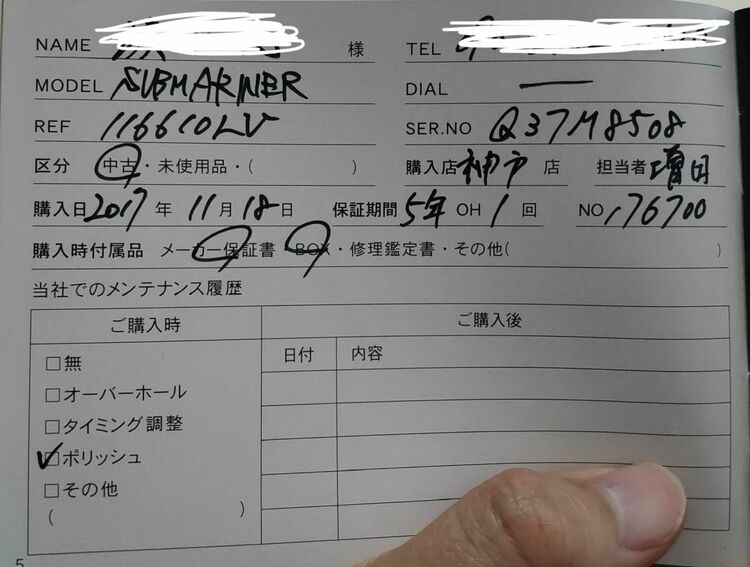 NAME 様 TEL
MODEL SUBMARINER DIAL —
REF 116610LV SER.NO Q37M8508
区分 中古・未使用品・( ) 購入店 神戸 店 担当者 増田
購入日 2017 年 11 月 18 日 保証期間 5年 OH 1 回 NO 176700
購入時付属品 メーカー保証書 BOX・修理鑑定書・その他( )
当社でのメンテナンス履歴
ご購入時 ご購入後
□無 日付 内容
□オーバーホール
□タイミング調整
☑ポリッシュ
□その他
( )
5